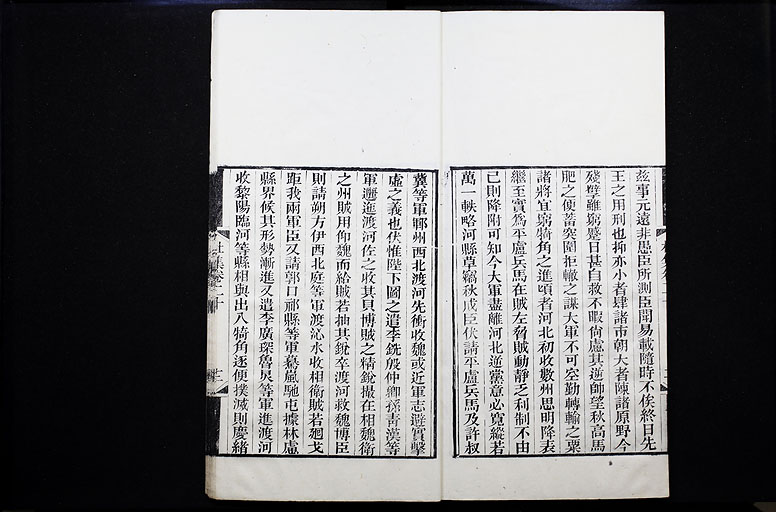 玆事元遠非愚臣所測臣聞易載隨時不俟終日先
王之用刑也抑亦小者肆諸市朝大者陳諸原野今
殘孽雖窮蹙日甚自救不暇尚慮其逆帥望秋高馬
肥之便蓄突圍拒轍之謀大軍不可空勤轉輸之粟
諸將宜窮犄角之進頃者河北初收數州思明降表
繼至實爲平盧兵馬在賊左脅賊動靜乏利制不由
己則降附可知今大軍盡離河北逆黨意必寬縱若
萬一軼略河縣草竊秋成臣伏請平盧兵馬及許叔
冀等軍鄆州西北渡河先衝收魏或近軍志避實擊
虛之義也伏惟陛下圖之遣李銑殷仲卿孫青漢等
軍邐迤渡河佐之收其貝博賊之精銳撮在相魏衛
之州賊用仰魏而給賊若抽其銳卒渡河救魏博臣
則請朔方伊西北庭等軍渡沁水收相衛賊若廻戈
距我兩軍臣又請郭口祁縣等軍驀嵐馳屯據林慮
縣界候其形勢漸進又遣李廣琛魯炅等軍進渡河
收黎陽臨河等縣相與出入犄角逐便撲滅則慶緒
杜集卷二十